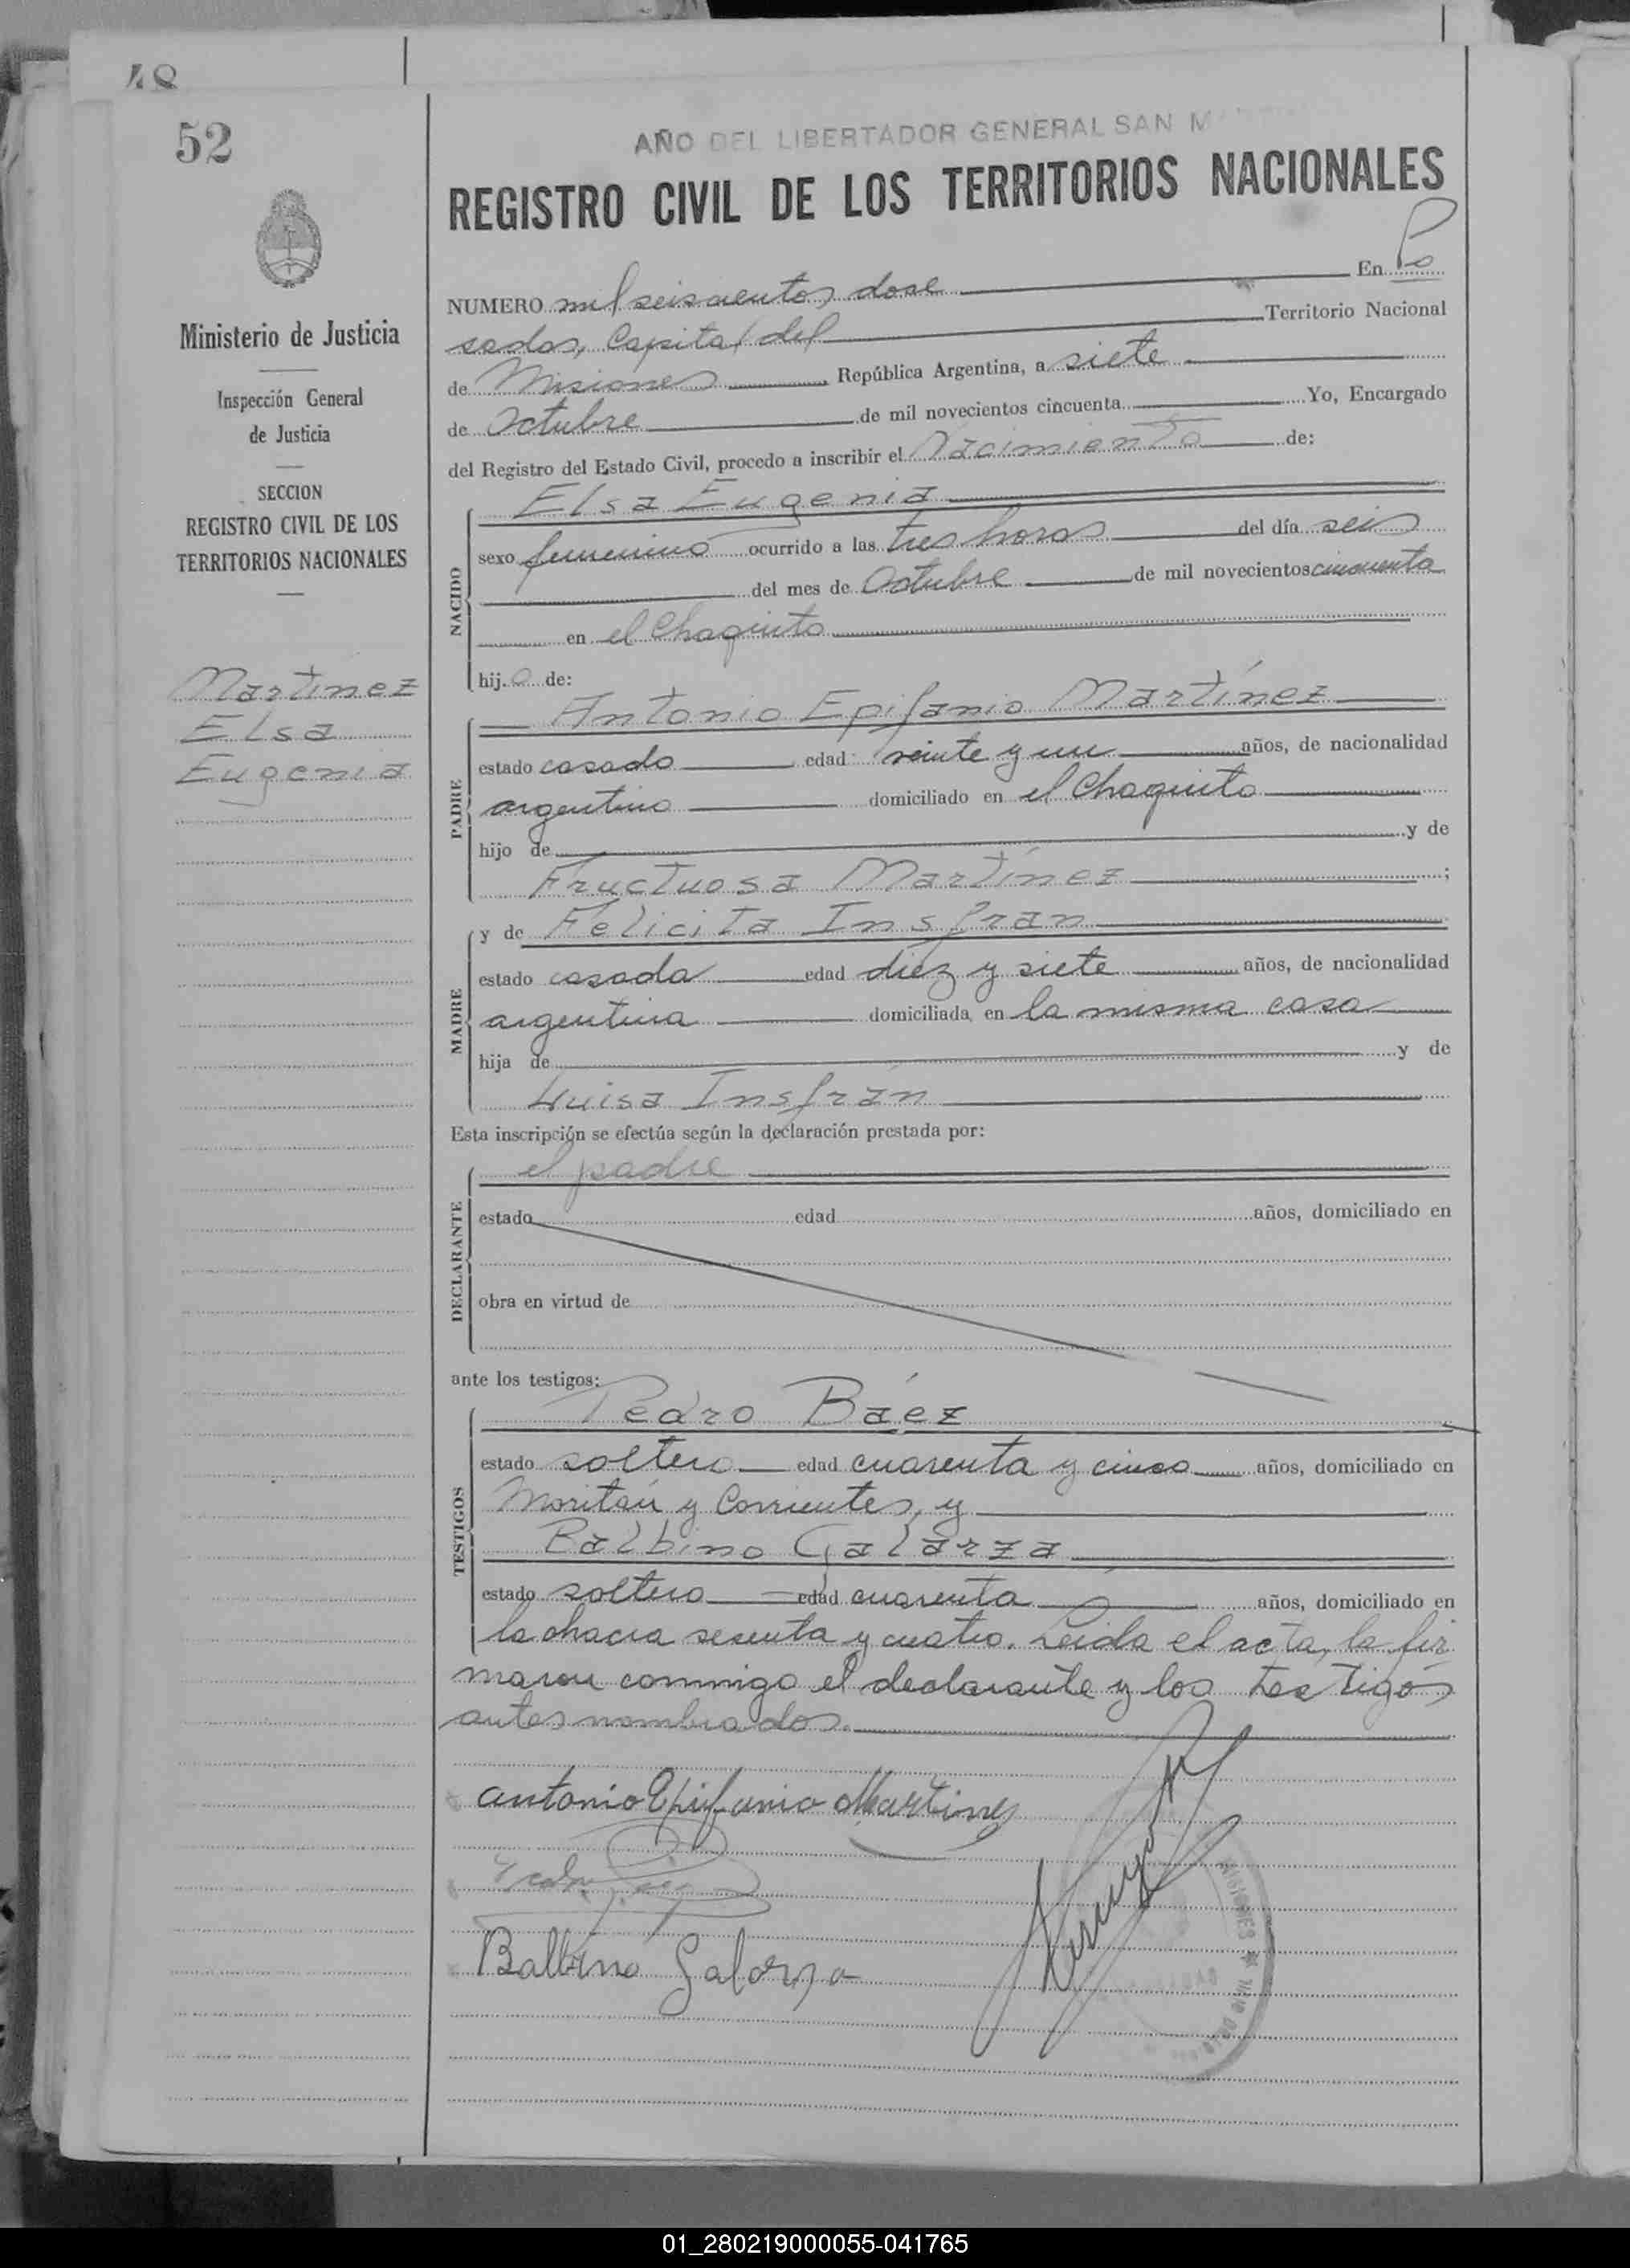 48
52
AÑO DEL LIBERTADOR GENERAL SAN M
REGISTRO CIVIL DE LOS TERRITORIOS NACIONALES
Ministerio de Justicia
Inspección General
de Justicia
SECCION
REGISTRO CIVIL DE LOS
TERRITORIOS NACIONALES
Martinez
Elsa
Eugenia
NUMERO mil seiscientos dose En Po
sadas, Capital del Territorio Nacional
de Misiones República Argentina, a siete
de Octubre de mil novecientos cincuenta Yo, Encargado
del Registro del Estado Civil, procedo a inscribir el Nacimiento de:
NACIDO
Elsa Eugenia
sexo femenino ocurrido a las tres horas del día seis
del mes de Octubre de mil novecientos cincuenta
en el Chaquito
hij.a de:
PADRE
Antonio Epifanio Martínez
estado casado edad veinte y un años, de nacionalidad
argentino domiciliado en el Chaquito
hijo de y de
Fructuosa Martínez ;
MADRE
y de Felicita Insfran
estado casada edad diez y siete años, de nacionalidad
argentina domiciliada en la misma casa
hija de y de
Luisa Insfrán
Esta inscripción se efectúa según la declaración prestada por:
DECLARANTE
el padre
estado edad años, domiciliado en
obra en virtud de
ante los testigos:
TESTIGOS
Pedro Báez
estado soltero edad cuarenta y cinco años, domiciliado en
Moritán y Corrientes, y
Balbino Galarza
estado soltero edad cuarenta años, domiciliado en
la chacra sesenta y cuatro. Leida el acta, la fir
maron conmigo el declarante y los testigos
antes nombrados.
antonio Epifanio Martinez
Balbino Galarza
MISIONES
01_280219000055-041765